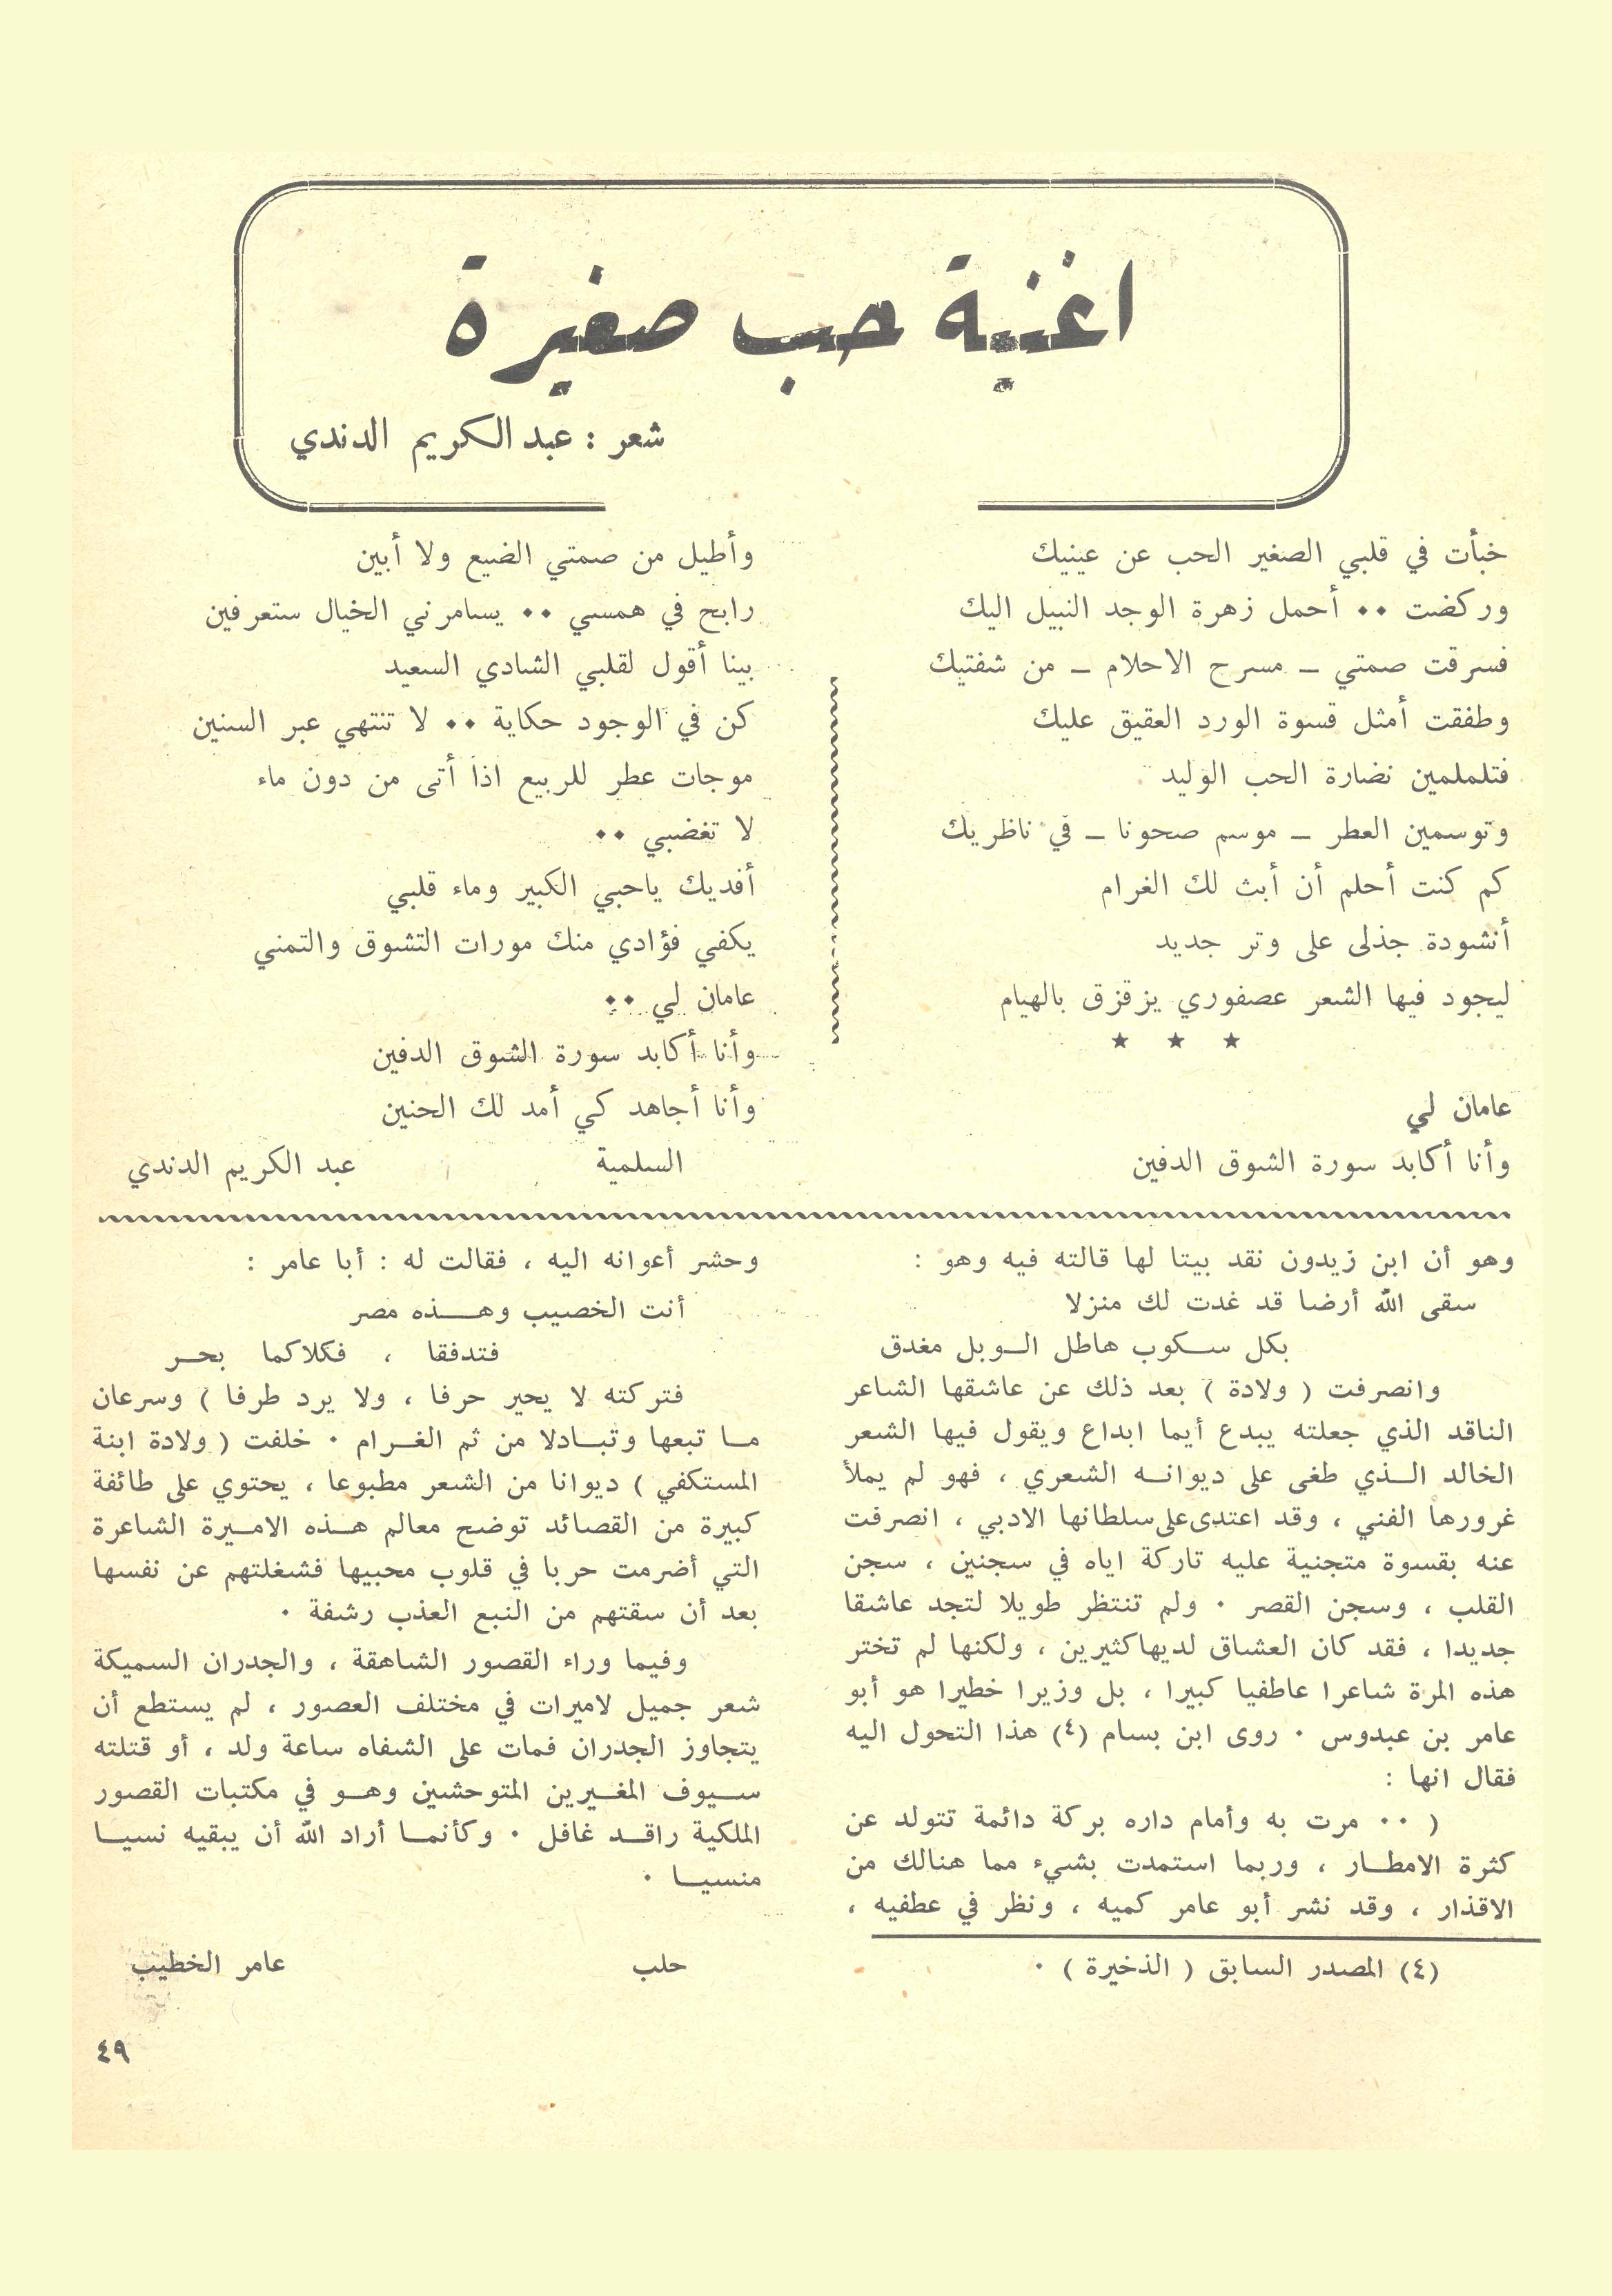 اغنية حب صغيرة
شعر : عبد الكريم الدندي
خبأت في قلبي الصغير الحب عن عينيك
وركضت ٠٠ أحمل زهرة الوجد النبيل اليك
فسرقت صمتي ــ مسرح الاحلام ــ من شفتيك
وطفقت أمثل قسوة الورد العقيق عليك
فتلملمين نضارة الحب الوليد
وتوسمين العطر ــ موسم صحونا ــ في ناظريك
كم كنت أحلم أن أبث لك الغرام
أنشودة جذلى على وتر جديد
ليجود فيها الشعر عصفوري يزقزق بالهيام
★ ★ ★
عامان لي
وأنا أكابد سورة الشوق الدفين
وأطيل من صمتي الضيع ولا أبين
رابح في همسي ٠٠ يسامرني الخيال ستعرفين
بينا أقول لقلبي الشادي السعيد
كن في الوجود حكاية ٠٠ لا تنتهي عبر السنين
موجات عطر للربيع اذا أتى من دون ماء
لا تغضبي ٠٠
أفديك ياحبي الكبير وماء قلبي
يكفي فؤادي منك مورات التشوق والتمني
عامان لي ٠٠
وأنا أكابد سورة الشوق الدفين
وأنا أجاهد كي أمد لك الحنين
السلمية عبد الكريم الدندي
وهو أن ابن زيدون نقد بيتا لها قالته فيه وهو :
سقى الله أرضا قد غدت لك منزلا
بكل سكوب هاطل الوبل مغدق
وانصرفت ( ولادة ) بعد ذلك عن عاشقها الشاعر
الناقد الذي جعلته يبدع أيما ابداع ويقول فيها الشعر
الخالد الذي طغى على ديوانه الشعري ، فهو لم يملأ
غرورها الفني ، وقد اعتدى على سلطانها الادبي ، انصرفت
عنه بقسوة متجنية عليه تاركة اياه في سجنين ، سجن
القلب ، وسجن القصر ٠ ولم تنتظر طويلا لتجد عاشقا
جديدا ، فقد كان العشاق لديها كثيرين ، ولكنها لم تختر
هذه المرة شاعرا عاطفيا كبيرا ، بل وزيرا خطيرا هو أبو
عامر بن عبدوس ٠ روى ابن بسام (٤) هذا التحول اليه
فقال انها :
( ٠٠ مرت به وأمام داره بركة دائمة تتولد عن
كثرة الامطار ، وربما استمدت بشيء مما هنالك من
الاقذار ، وقد نشر أبو عامر كميه ، ونظر في عطفيه ،
(٤) المصدر السابق ( الذخيرة ) ٠
وحشر أعوانه اليه ، فقالت له : أبا عامر :
أنت الخصيب وهذه مصر
فتدفقا ، فكلاكما بحر
فتركته لا يحير حرفا ، ولا يرد طرفا ) وسرعان
ما تبعها وتبادلا من ثم الغرام ٠ خلفت ( ولادة ابنة
المستكفي ) ديوانا من الشعر مطبوعا ، يحتوي على طائفة
كبيرة من القصائد توضح معالم هذه الاميرة الشاعرة
التي أضرمت حربا في قلوب محبيها فشغلتهم عن نفسها
بعد أن سقتهم من النبع العذب رشفة ٠
وفيما وراء القصور الشاهقة ، والجدران السميكة
شعر جميل لاميرات في مختلف العصور ، لم يستطع أن
يتجاوز الجدران فمات على الشفاه ساعة ولد ، أو قتلته
سيوف المغيرين المتوحشين وهو في مكتبات القصور
الملكية راقد غافل ٠ وكأنما أراد الله أن يبقيه نسيا
منسيا ٠
حلب عامر الخطيب
٤٩